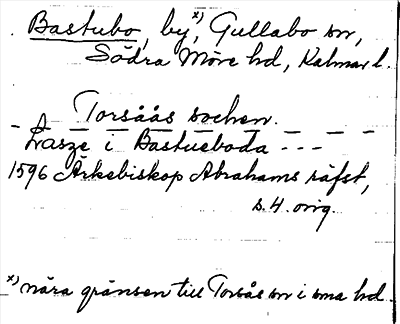 Bastubo, by,ˣ⁾ Gullabo sn,
Södra Möre hd, Kalmar l.
Torsåås sochen.
Lasze i Bastueboda ---
1596 Ärkebiskop Abrahams räfst,
s. 4. orig.
ˣ⁾ nära gränsen till Torsås sn i sma hd.